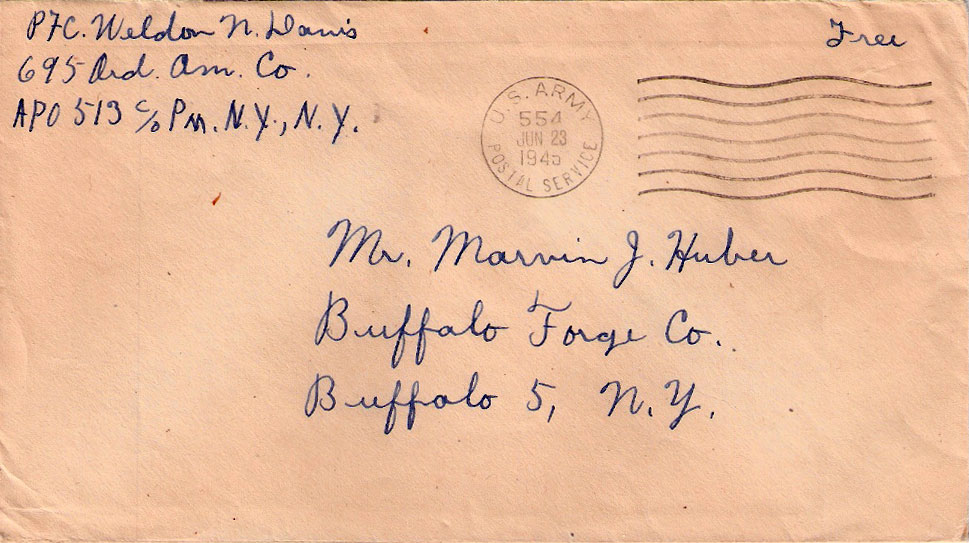 Pfc. Weldon N. Davis
Free
695 Ord. Am. Co.
APO 513 c/o Pm. N.Y., N.Y.
U.S. ARMY
554
JUN 23
1945
POSTAL SERVICE
Mr. Marvin J. Huber
Buffalo Forge Co.
Buffalo 5, N.Y.